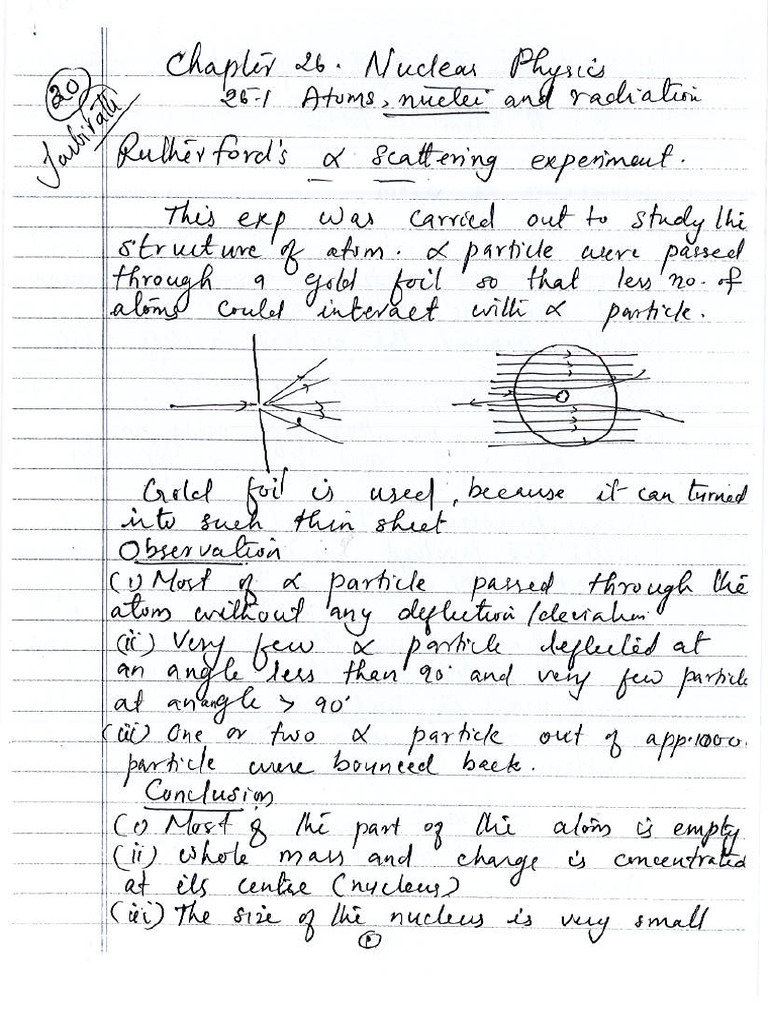 Chapter 26. Nuclear Physics
20
26.1 Atoms, nuclei and radiation
Rutherford's α scattering experiment.
This exp was carried out to study the
structure of atom. α particle were passed
through a gold foil so that less no. of
atoms could interact with α particle.
Gold foil is used, because it can turned
into such thin sheet
Observation
(i) Most of α particle passed through the
atom without any deflection/deviation
(ii) Very few α particle deflected at
an angle less than 90° and very few particle
at an angle > 90°
(iii) One or two α particle out of app.
particle were bounced back.
Conclusion
(i) Most of the part of the atom is empty
(ii) whole mass and charge is concentrated
at its centre (nucleus)
(iii) The size of the nucleus is very small